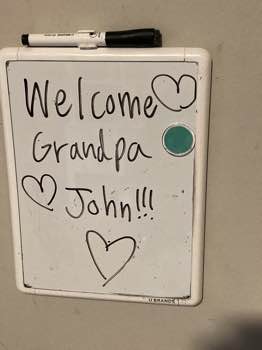 Welcome
Grandpa
John!!!
U BRANDS